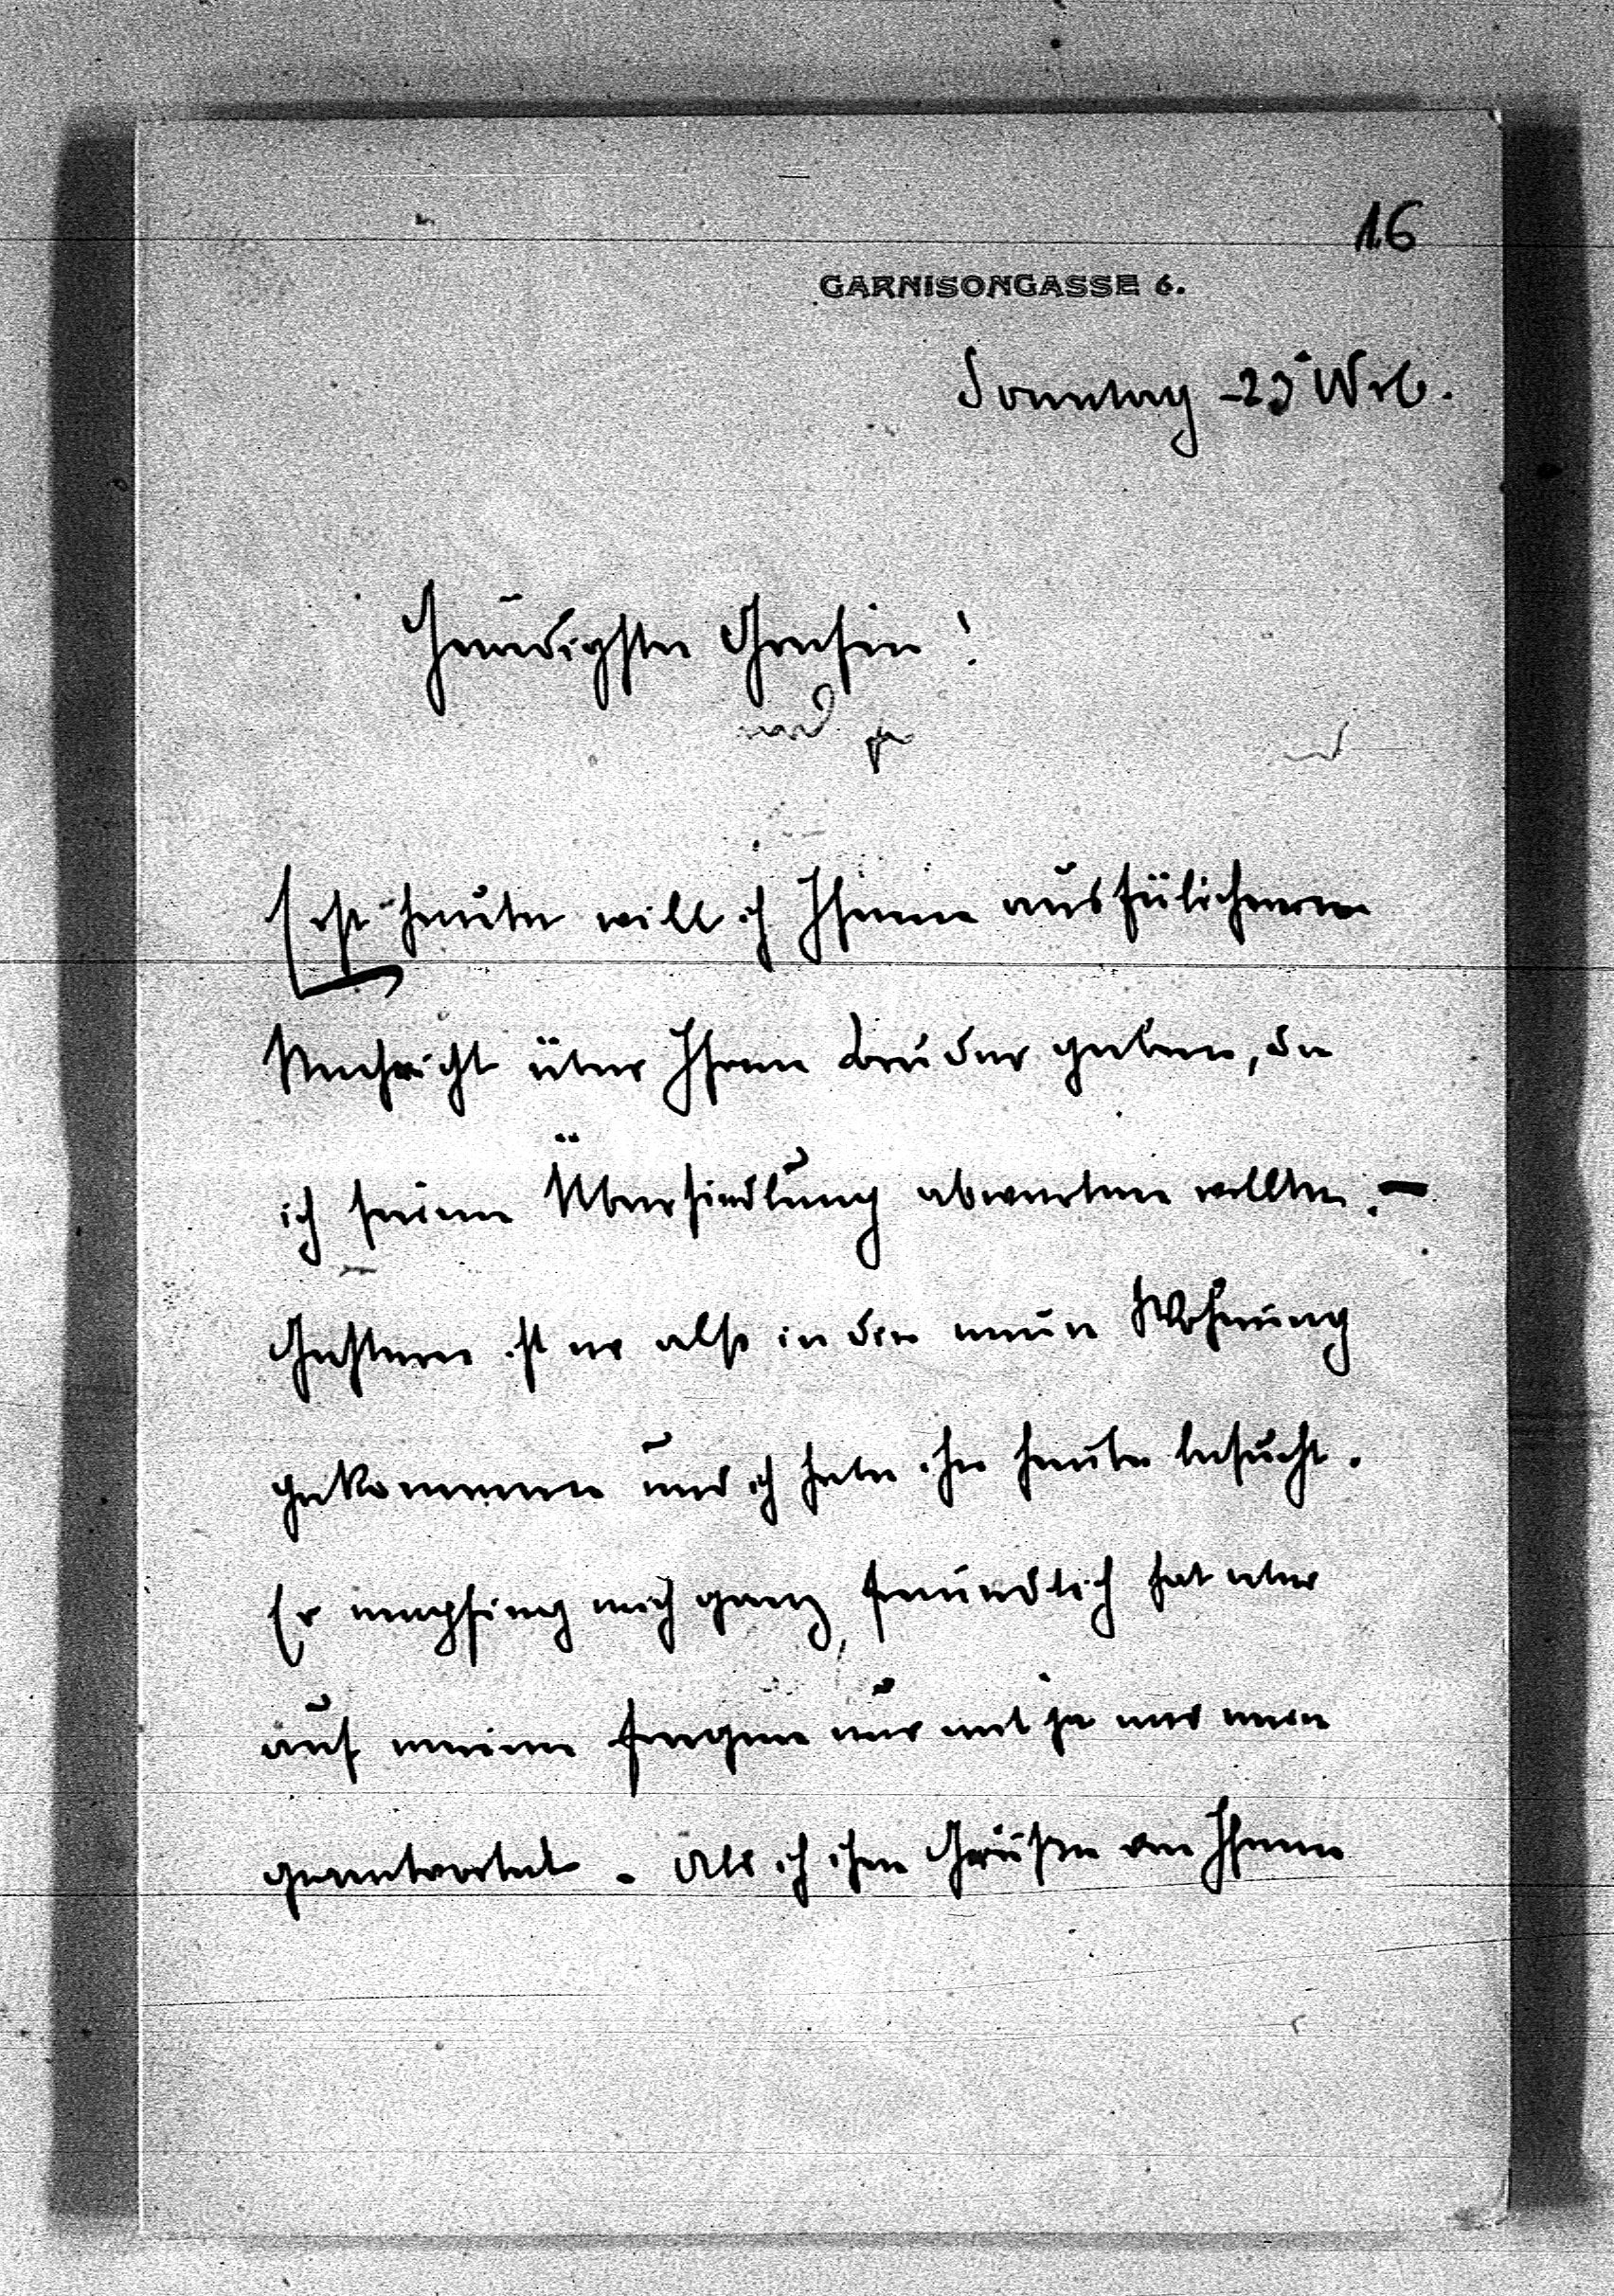 16
GARNISONGASSE 6.
Sonntag 23 
Gnädigste Gräfin!
und ja
Erst heute will ich Ihnen ausfülichere
Nachricht über Ihren Bruder geben, da
ich seine Übersiedlung abwarten wollte. —
Gestern ist er also in die neue Wohnung
gekommen und ich habe ihn heute besucht.
Er empfing mich ganz freundlich hat aber
auf meine Fragen nur mit ja und nein
geantwortet. Als ich ihm Grüße von Ihnen